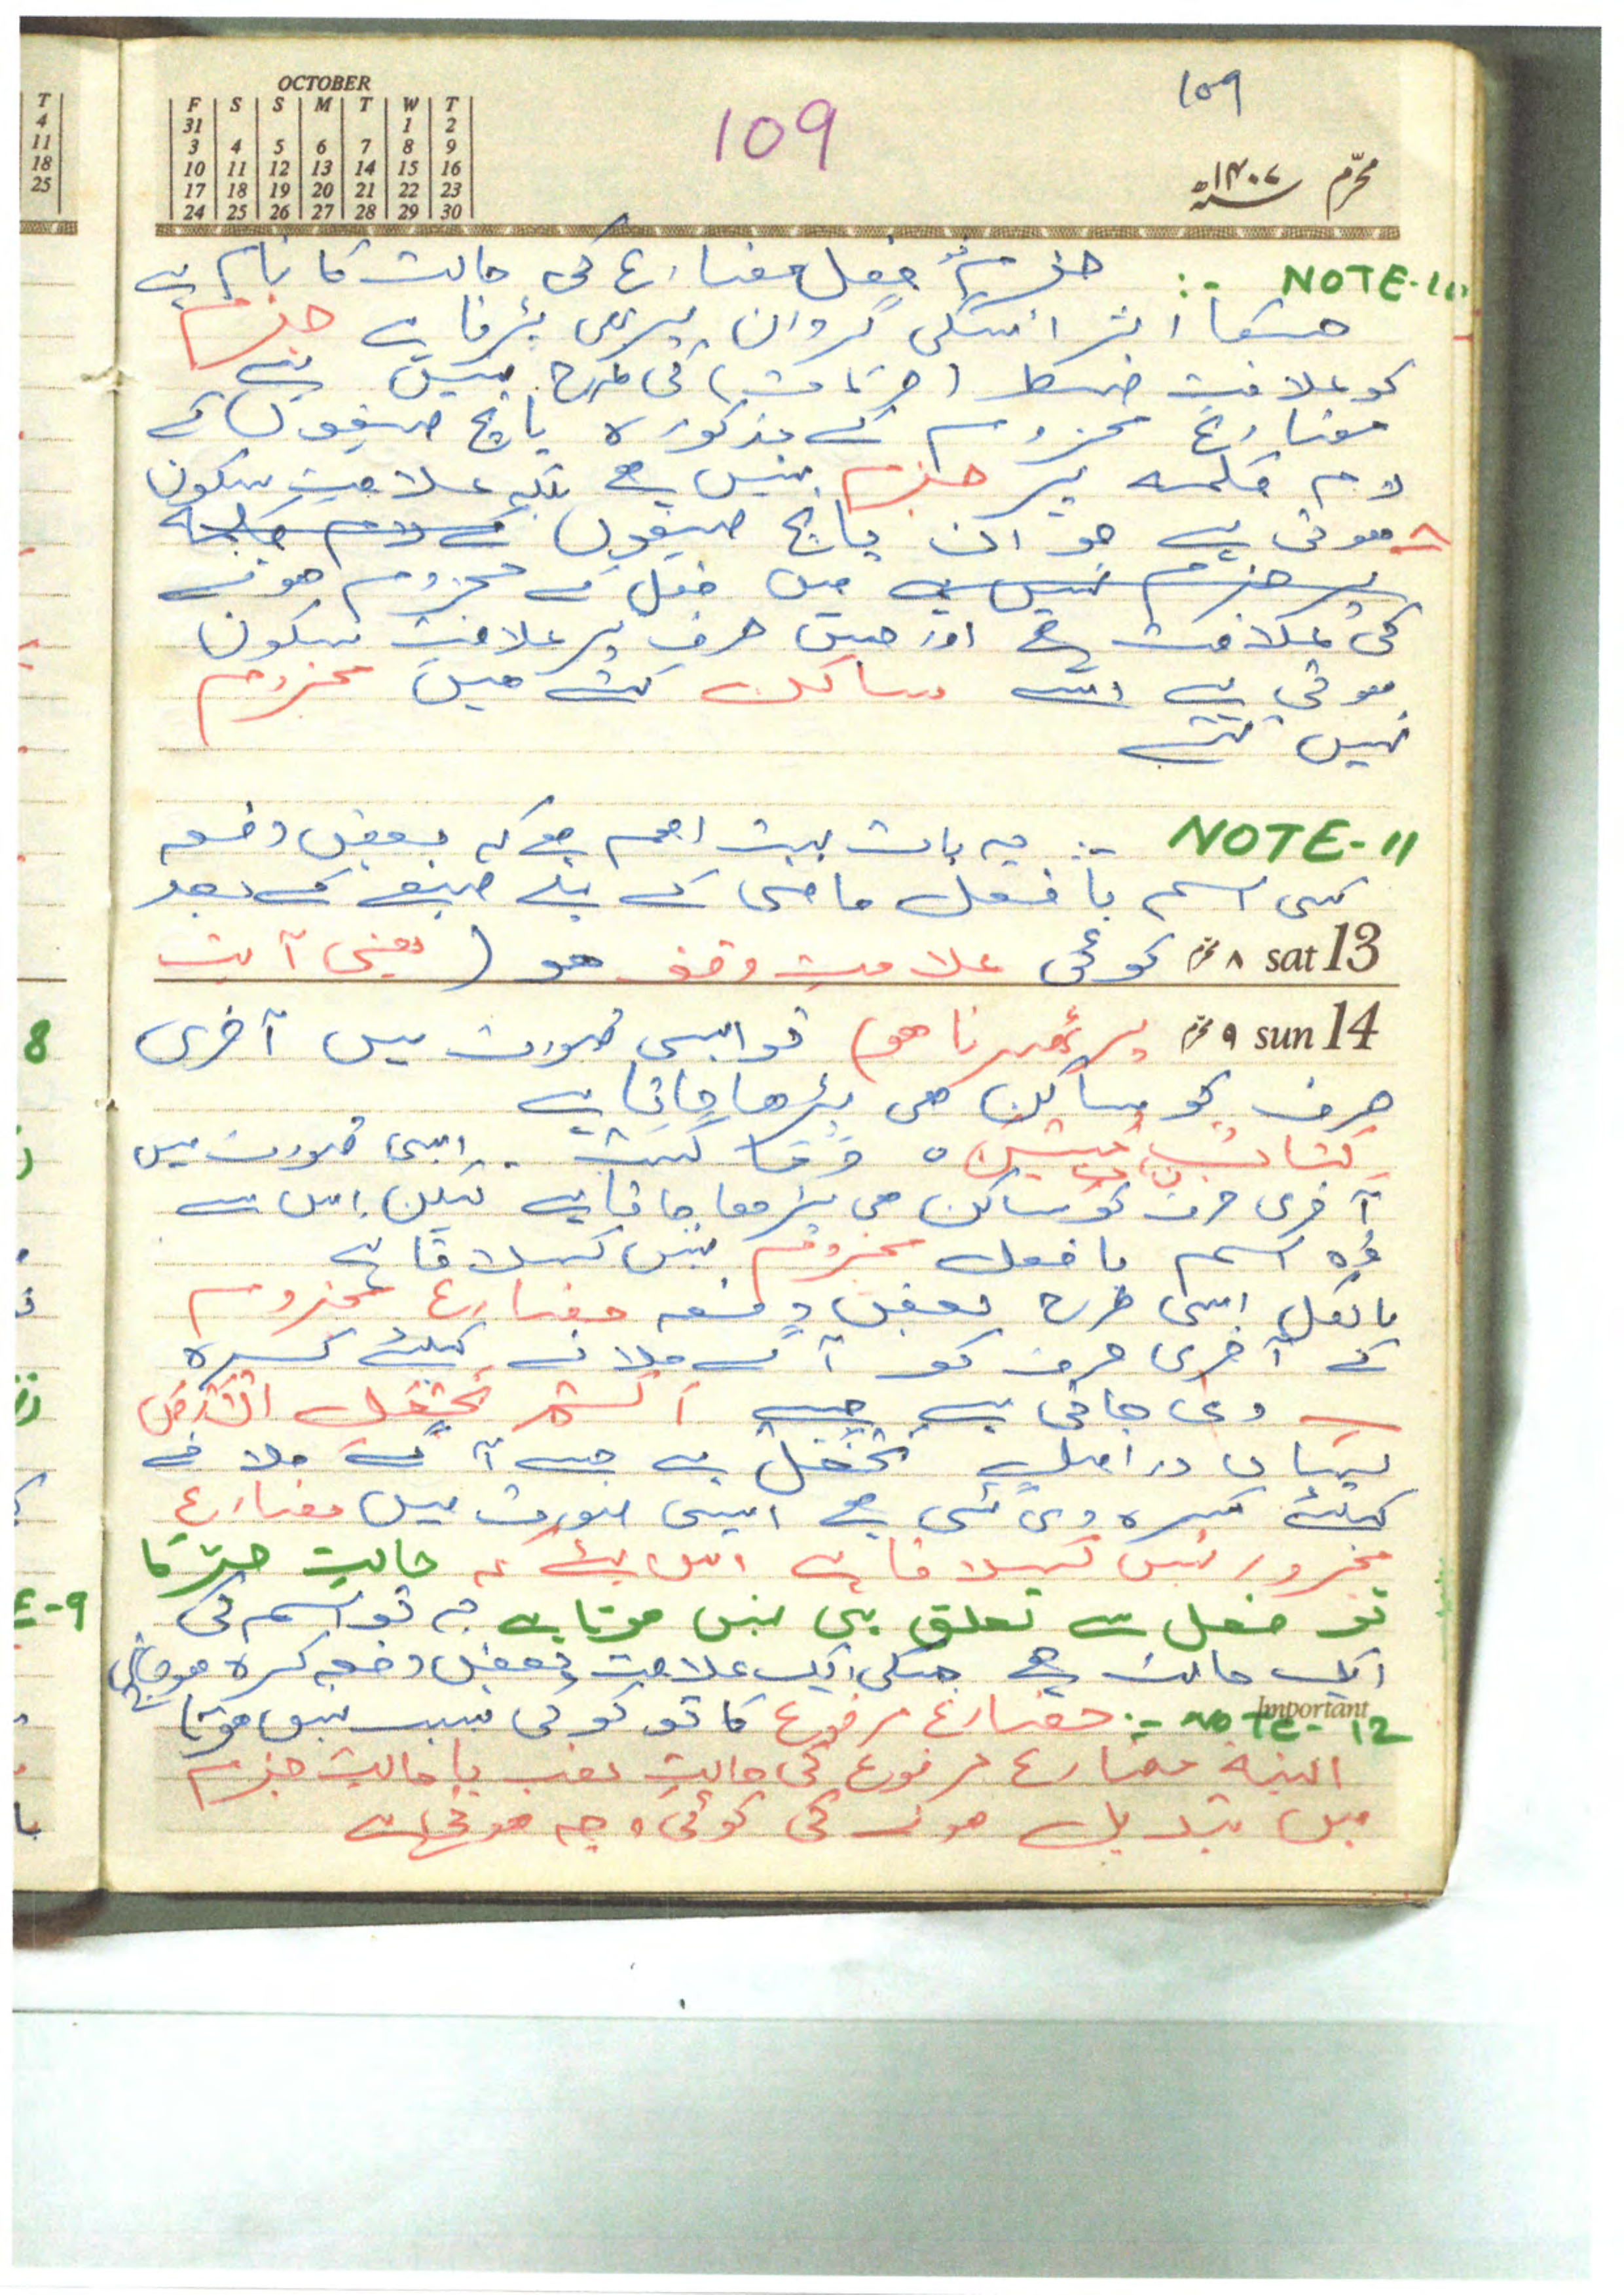 OCTOBER
F S S M T W T
31 1 2
3 4 5 6 7 8 9
10 11 12 13 14 15 16
17 18 19 20 21 22 23
24 25 26 27 28 29 30
109
109
محرّم ۱۴۰۷ھ
NOTE-10 :- جزم فعل مضارع کی حالت کا نام ہے
جسکا اثر اسکی گردان پر بھی پڑتا ہے جزم
کو علامت ضبط (حرکات) کی طرح نہیں ہے
مضارع مجزوم کے مذکورہ پانچ صیغوں کے
لام کلمہ پر جزم نہیں ہے بلکہ علامت سکون
ہوتی ہے جو ان پانچ صیغوں کے لام کلمہ
پر جزم نہیں ہے میں فعل کے مجزوم ہونے
کی علامت ہے اور جس حرف پر علامت سکون
ہوتی ہے اسے ساکن کہتے ہیں مجزوم
نہیں کہتے
NOTE-11 :- یہ بات بہت اہم ہے کہ بعض دفعہ
کسی اسم یا فعل ماضی کے پہلے صیغے کے بعد
sat 13 ۸ محرم کوئی علامت وقف ہو (یعنی آیت
sun 14 ۹ محرم پر ٹھہرنا ہو) تو ایسی صورت میں آخری
حرف کو ساکن ہی پڑھا جاتا ہے
کتاب مبین ہ وما کسب . ایسی صورت میں
آخری حرف کو ساکن ہی پڑھا جاتا ہے لیکن اس سے
وہ اسم یا فعل مجزوم نہیں کہلاتا ہے
بالکل اسی طرح بعض دفعہ مضارع مجزوم
کے آخری حرف کو آگے ملانے کیلئے کسرہ
دی جاتی ہے جیسے الم نجعل الارض
یہاں دراصل نجعل ہے جسے آگے ملانے
کیلئے کسرہ دی گئی ہے ایسی صورت میں مضارع
مجرور نہیں کہلاتا ہے اس لئے کہ حالت جر کا
تو فعل سے تعلق ہی نہیں ہوتا ہے یہ تو اسم کی
ایک حالت ہے جسکی ایک علامت بعض دفعہ کسرہ ہوتی ہے
Important
NOTE-12 :- مضارع مرفوع کا تو کوئی سبب نہیں ہوتا
البتہ مضارع مرفوع کی حالت نصب یا حالت جزم
میں تبدیل ہونے کی کوئی وجہ ہوتی ہے